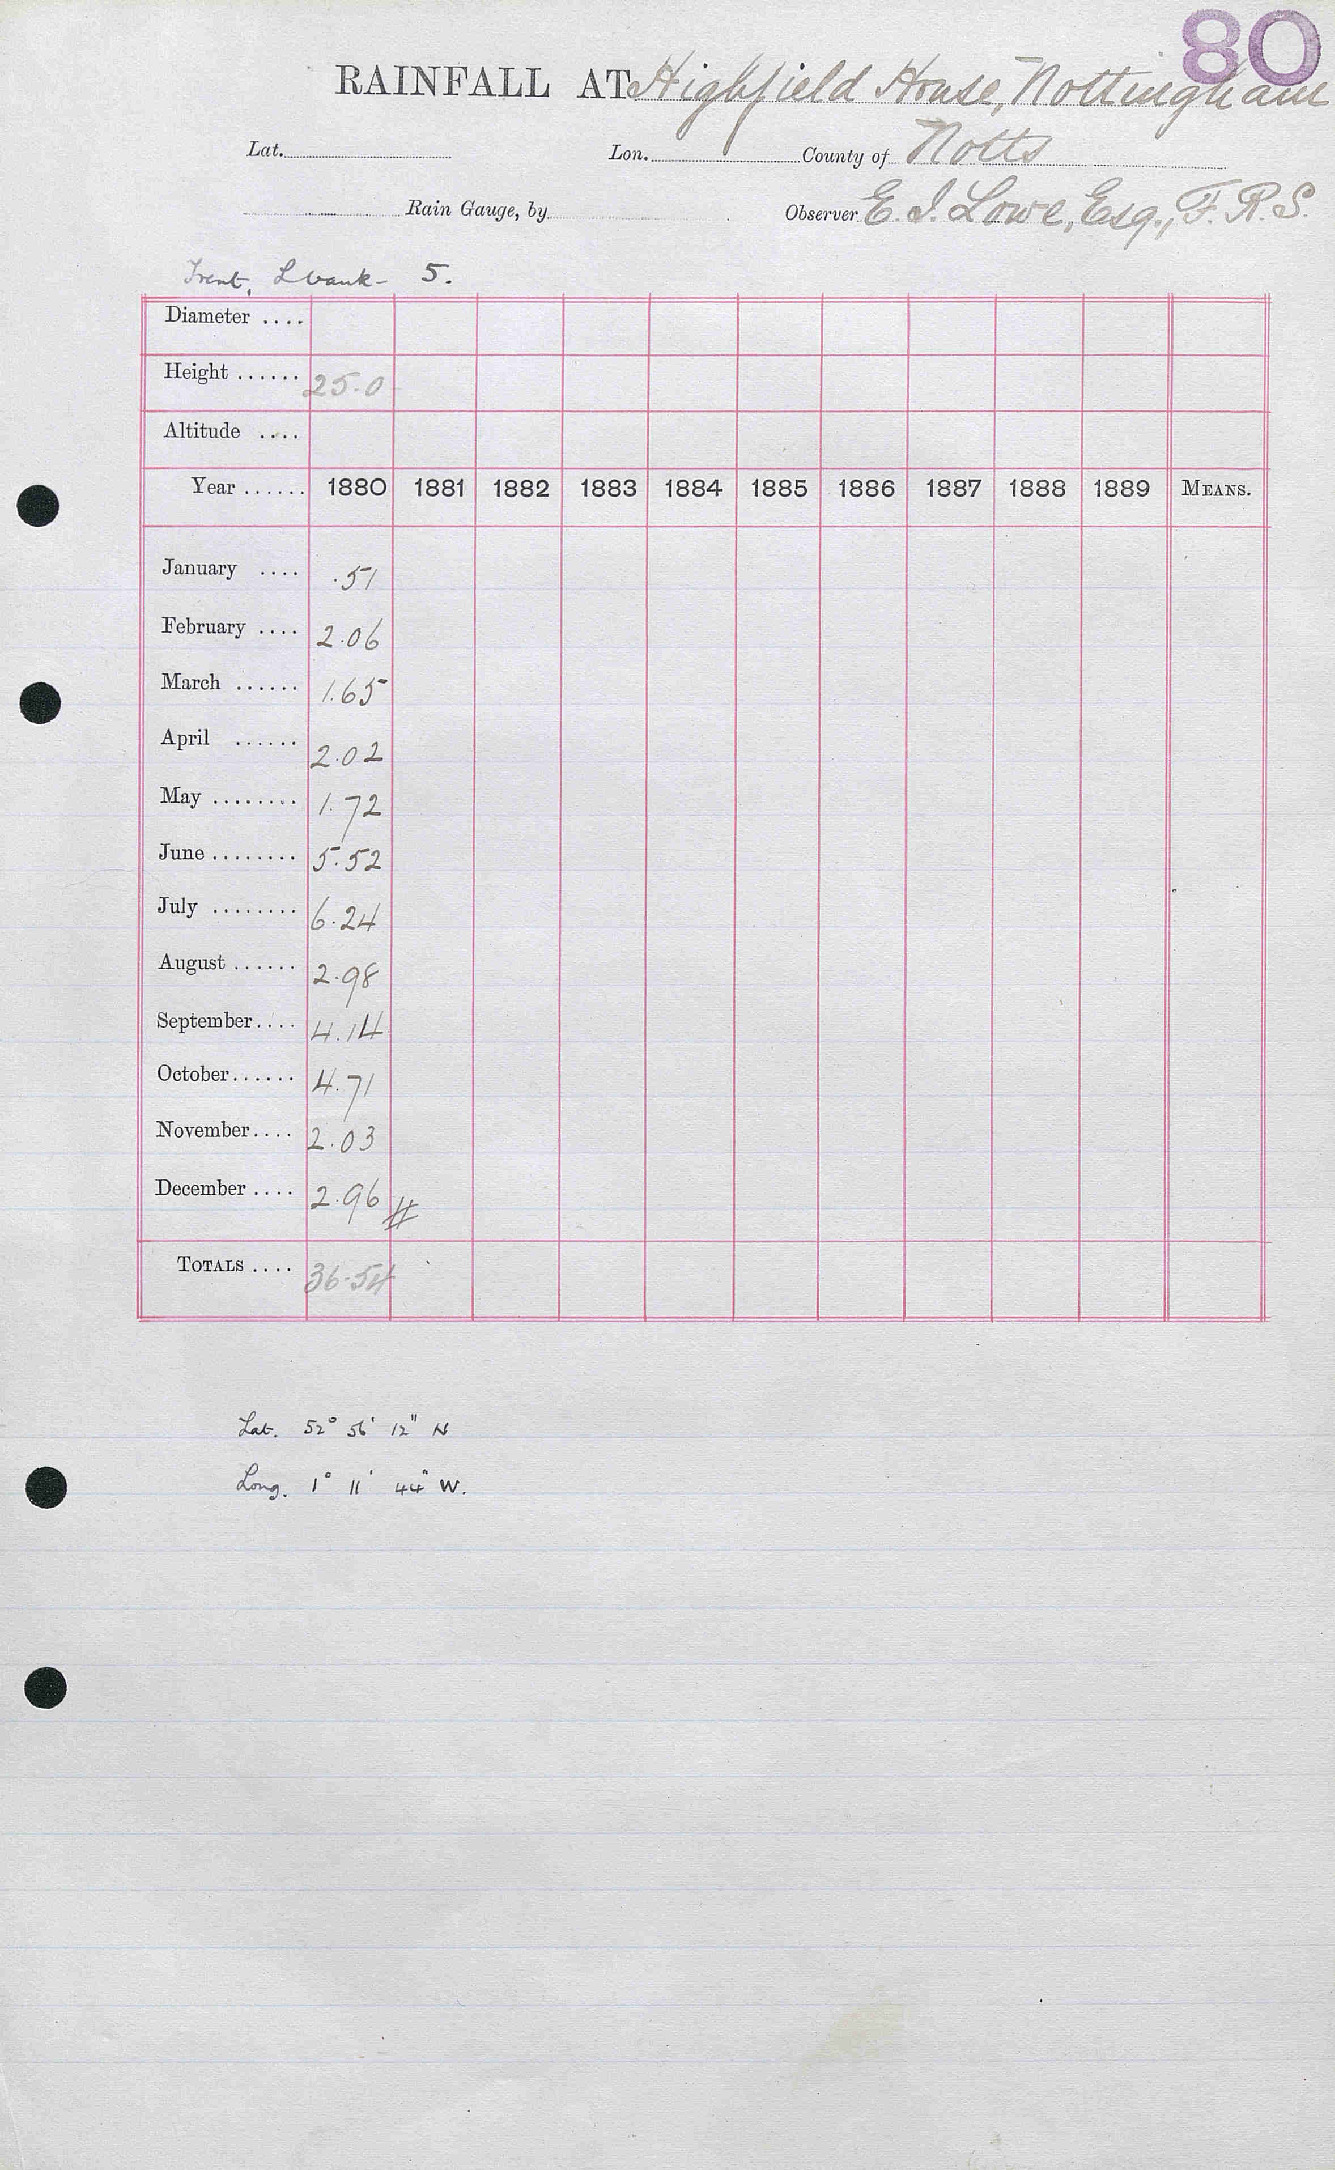 80
RAINFALL AT Highfield House, Nottingham
Lat. Lon. County of Notts
Rain Gauge, by Observer E. J. Lowe, Esq., F.R.S.
Trent, L bank - 5.
Diameter ....
Height ...... 25.0
Altitude ....
Year ...... 1880 1881 1882 1883 1884 1885 1886 1887 1888 1889 MEANS.
January .... .51
February .... 2.06
March ...... 1.65
April ...... 2.02
May ........ 1.72
June ........ 5.52
July ........ 6.24
August ...... 2.98
September .... 4.14
October ...... 4.71
November .... 2.03
December .... 2.96 #
TOTALS .... 36.54
Lat. 52° 56' 12" N
Long. 1° 11' 44" W.